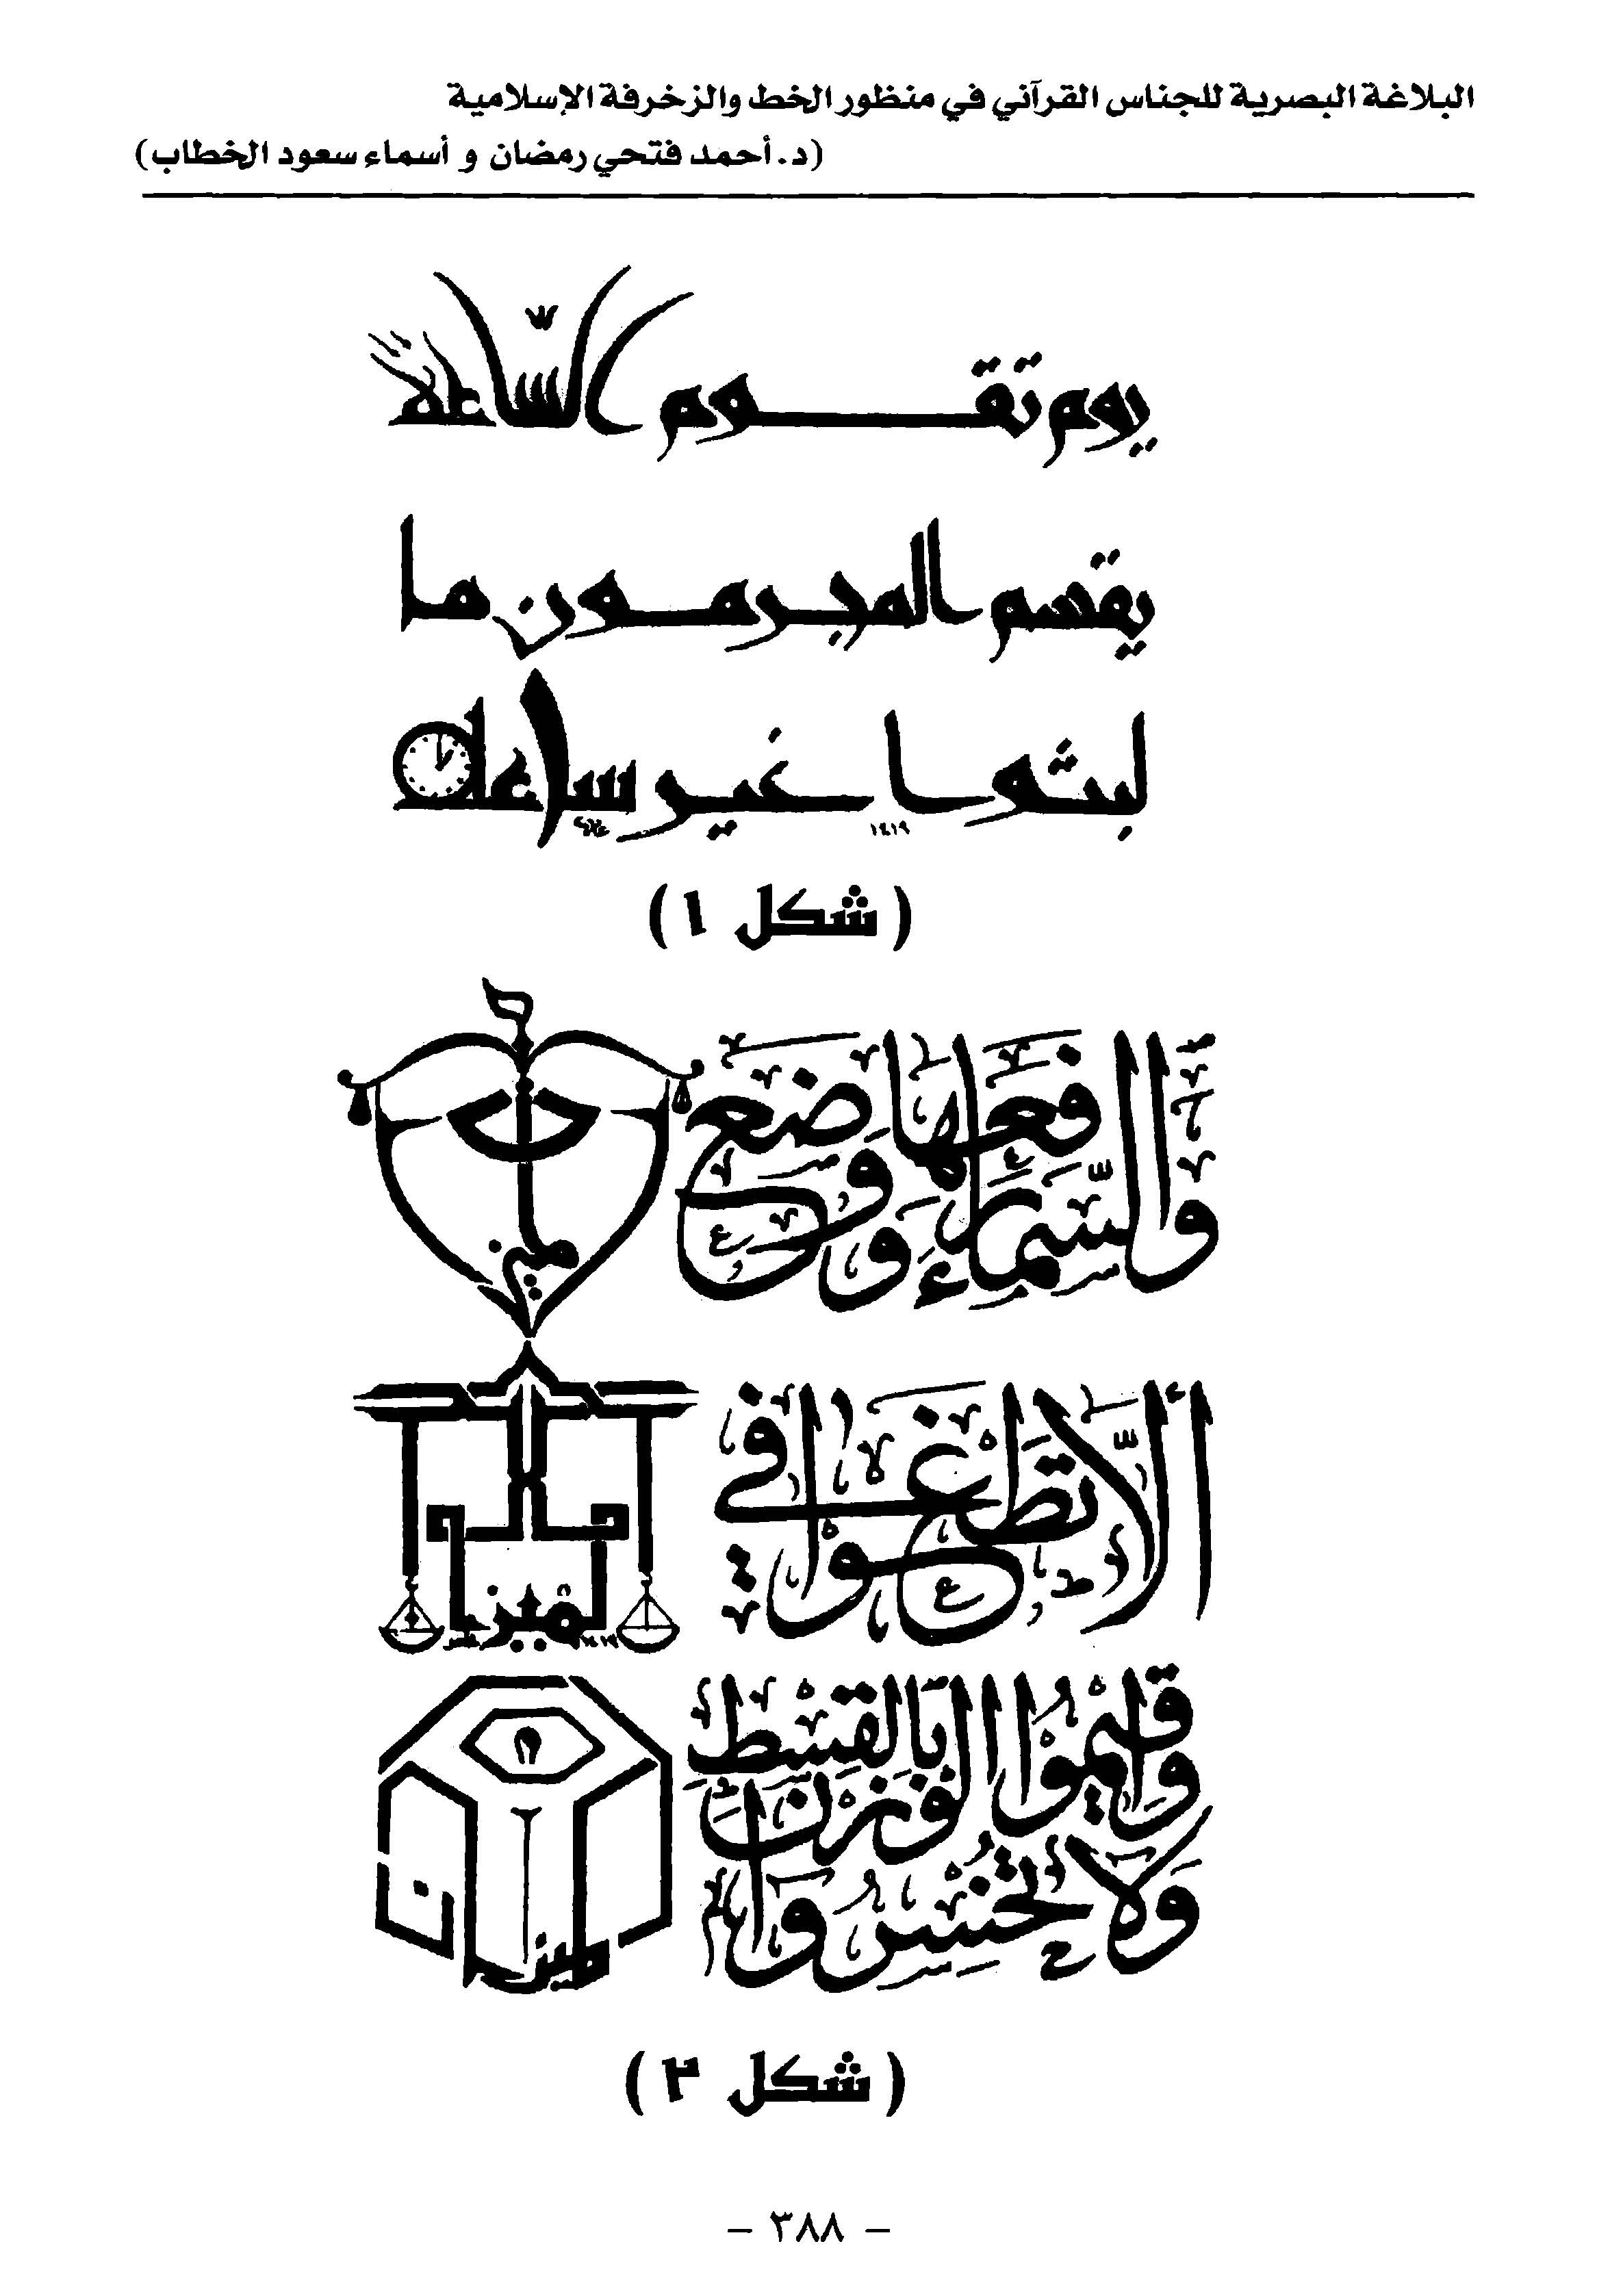 البلاغة البصرية للجناس القرآني في منظور الخط والزخرفة الإسلامية
(د. أحمد فتحي رمضان و أسماء سعود الخطاب)
يوم تقوم الساعة
يقسم المجرمون ما
لبثوا غير ساعة
١٤١٩
(شكل ١)
وَالسَّمَاءَ رَفَعَهَا وَوَضَعَ الميزان
أَلَّا تَطْغَوْا فِي الميزان
١٤١٩
وَأَقِيمُوا الْوَزْنَ بِالْقِسْطِ
وَلَا تُخْسِرُوا الميزان
(شكل ٢)
- ٣٨٨ -